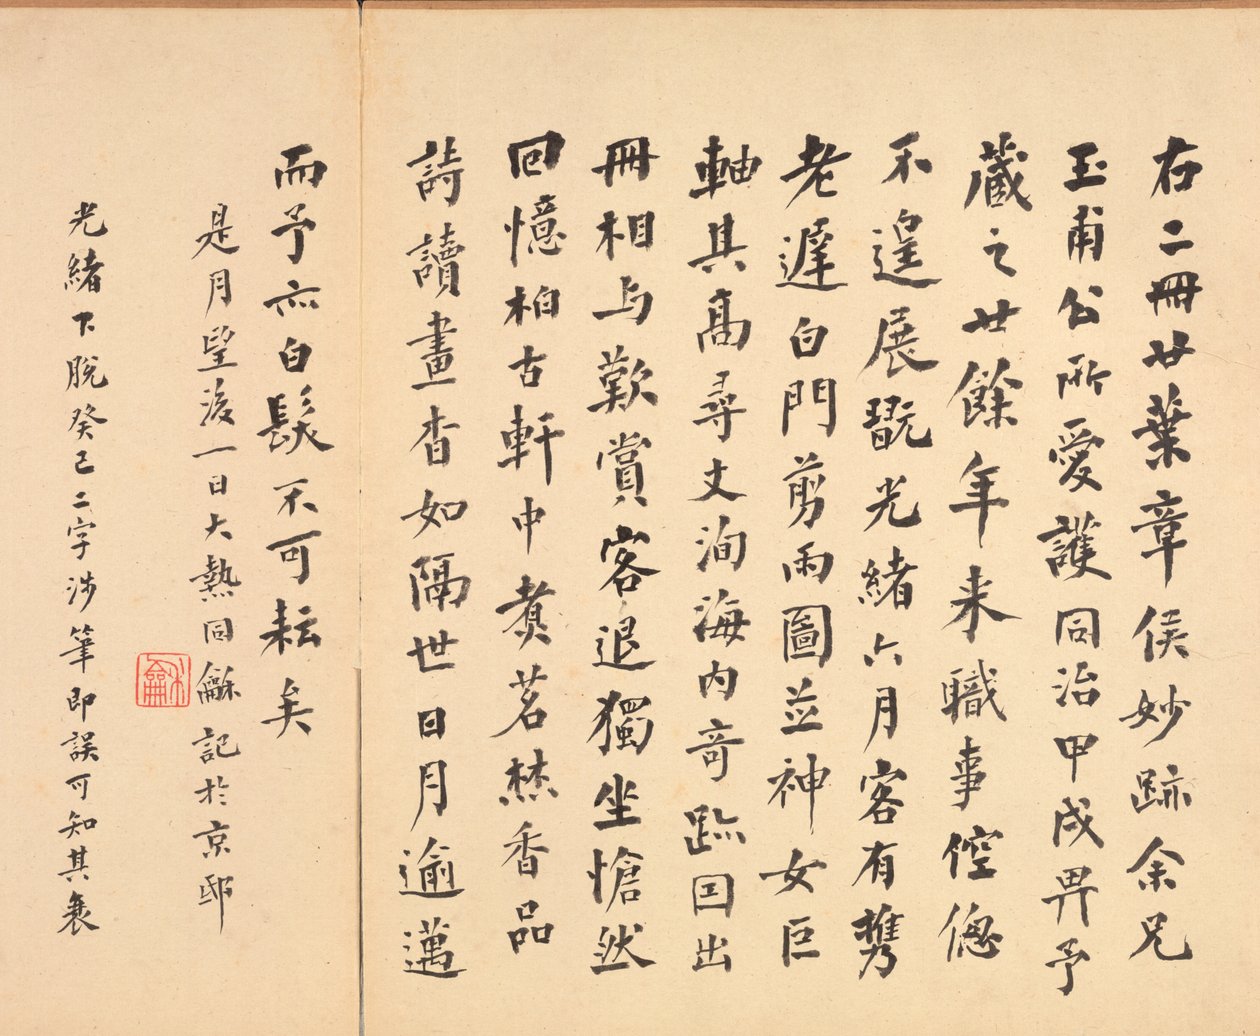 右二冊廿葉章侯妙跡余兄
玉甫公所愛護同治甲戌畀予
藏之廿餘年来職事倥偬
不遑展翫光緒六月客有攜
老遲白門剪雨圖並神女巨
軸其高尋丈洵海内奇跡因出
冊相与歎賞客退獨坐愴然
回憶柏古軒中煑茗焚香品
詩讀畫杳如隔世日月逾邁
而予亦白髮不可耘矣
是月望後一日大熱同龢記於京邸
龢
光緒下脫癸巳二字涉筆即誤可知其衰